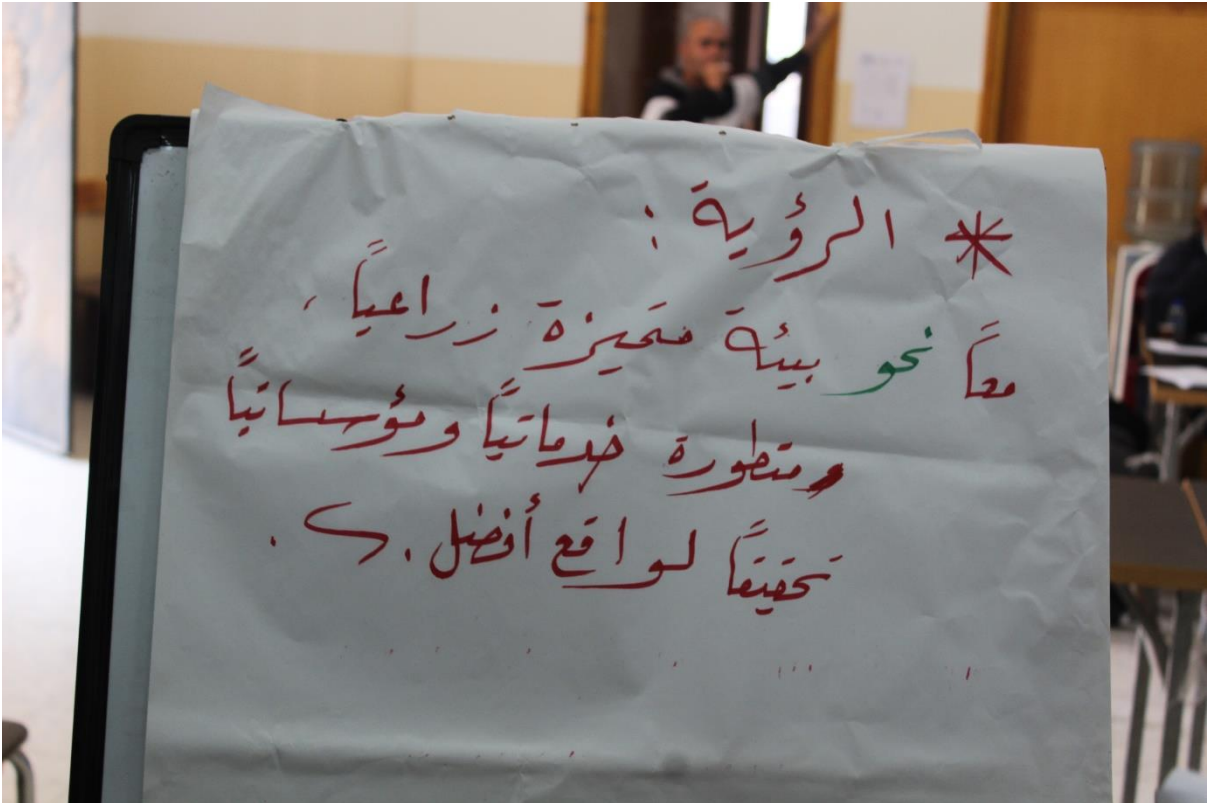 * الرؤية :
معاً نحو بيئة متميزة زراعياً ،
ومتطورة خدماتياً ومؤسساتياً
تحقيقاً لواقع أفضل .